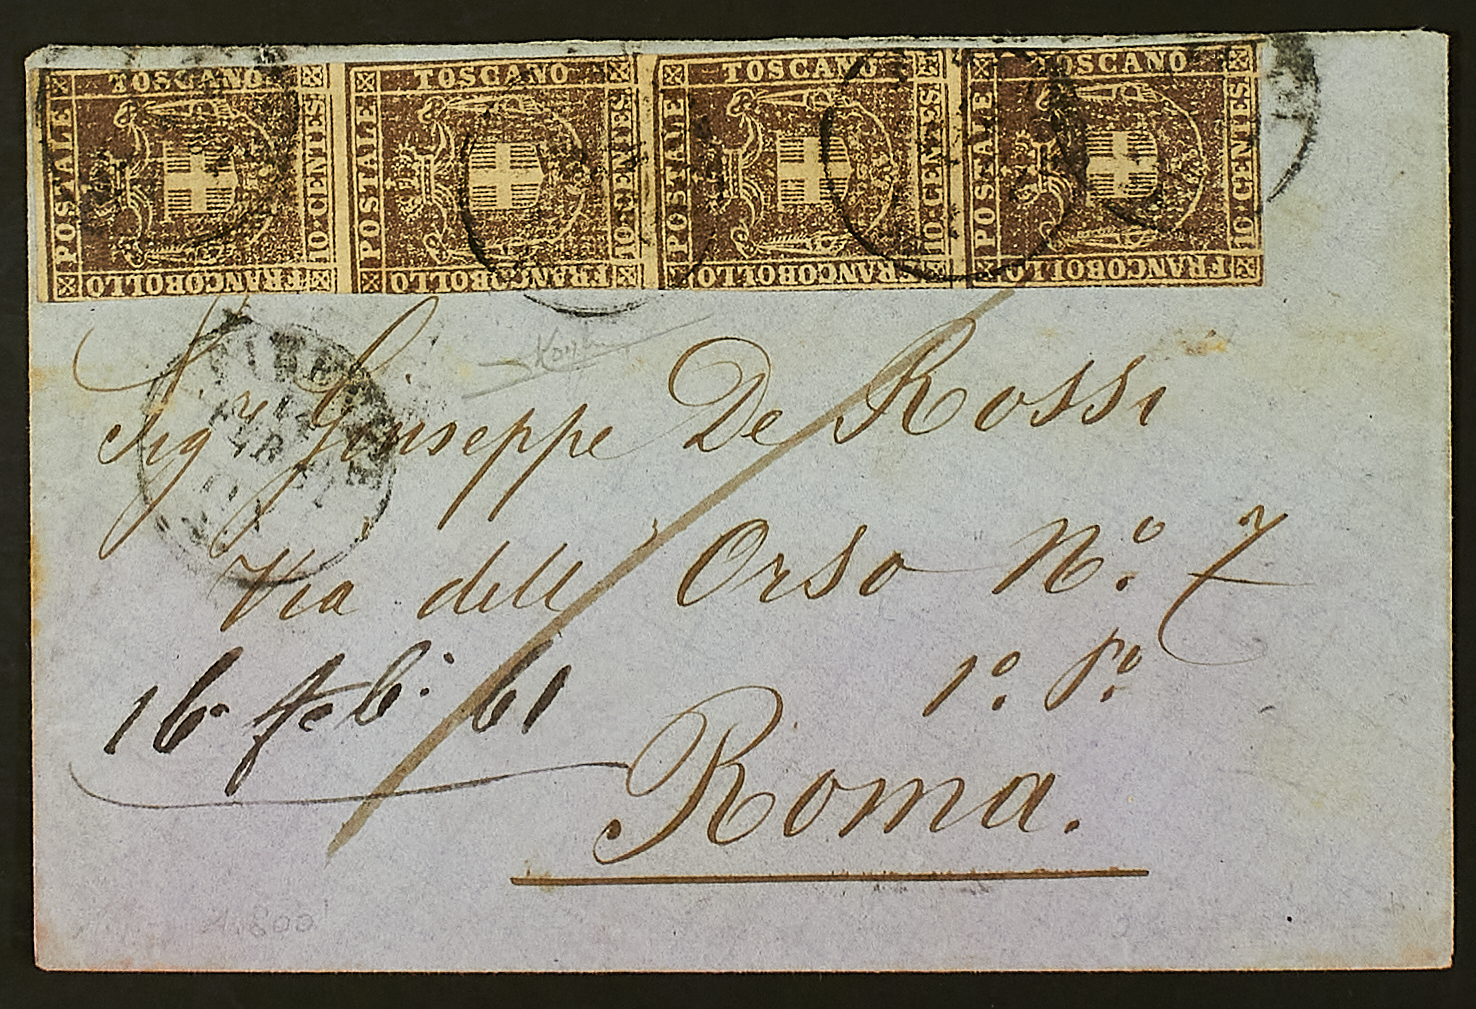 TOSCANO TOSCANO TOSCANO TOSCANO
POSTALE 10 CENTES POSTALE 10 CENTES POSTALE 10 CENTES POSTALE 10 CENTES
FRANCOBOLLO FRANCOBOLLO FRANCOBOLLO FRANCOBOLLO
FIRENZE
Sig.re Giuseppe De Rossi
Via dell' Orso N.º 7
1.º P.º
16 Feb: 61
Roma.
1.800